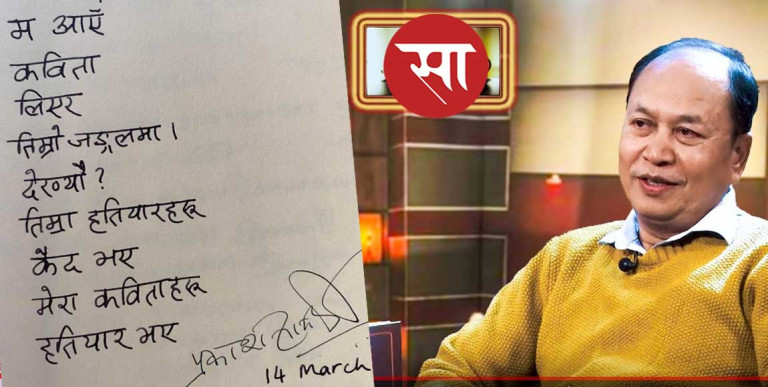 म आएँ
कविता
लिएर
तिम्रो जङ्गलमा ।
देख्यौ ?
तिम्रा हतियारहरू
कैद भए
मेरा कविताहरू
हतियार भए
प्रकाश
14 March
सा